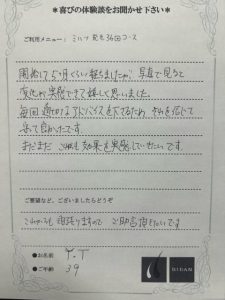 ＊喜びの体験談をお聞かせ下さい＊
ご利用メニュー： ミルフ 発毛36回コース
開始して5ヶ月くらい経ちましたが、写真で見ると
変化が実感できて嬉しく思いました。
毎回適切なアドバイスを下さるため、それを信じて
来て良かったです。
まだまだ これからも効果を実感していきたいです。
ご要望など、ございましたらどうぞ
これからも頑張りますので ご助言頂きたいです
●お名前 Y.T
●ご年齢 39